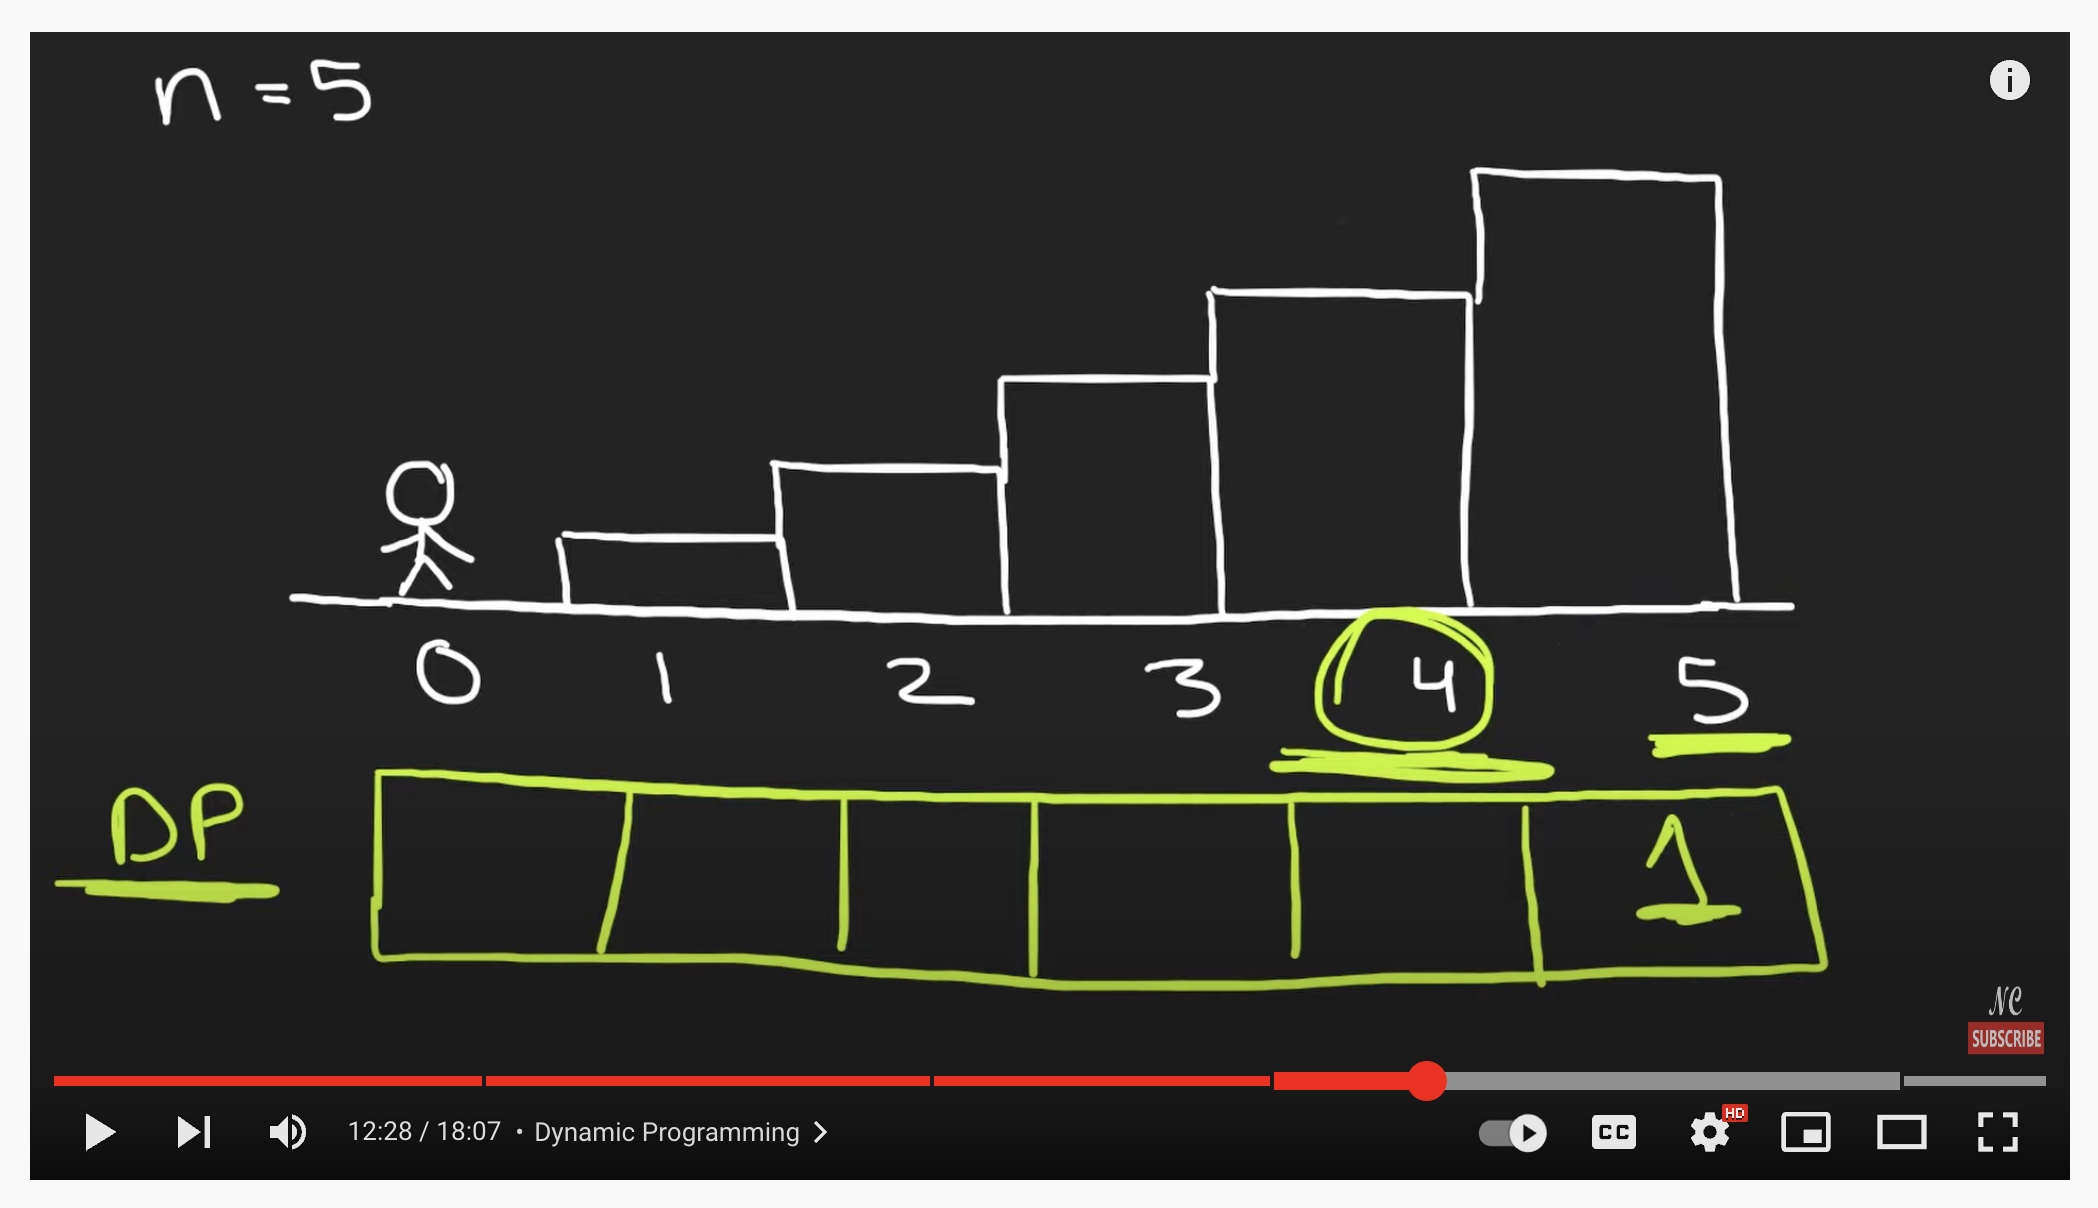 n = 5
i
0 1 2 3 4 5
DP
1
NC
SUBSCRIBE
12:28 / 18:07 • Dynamic Programming
CC
HD